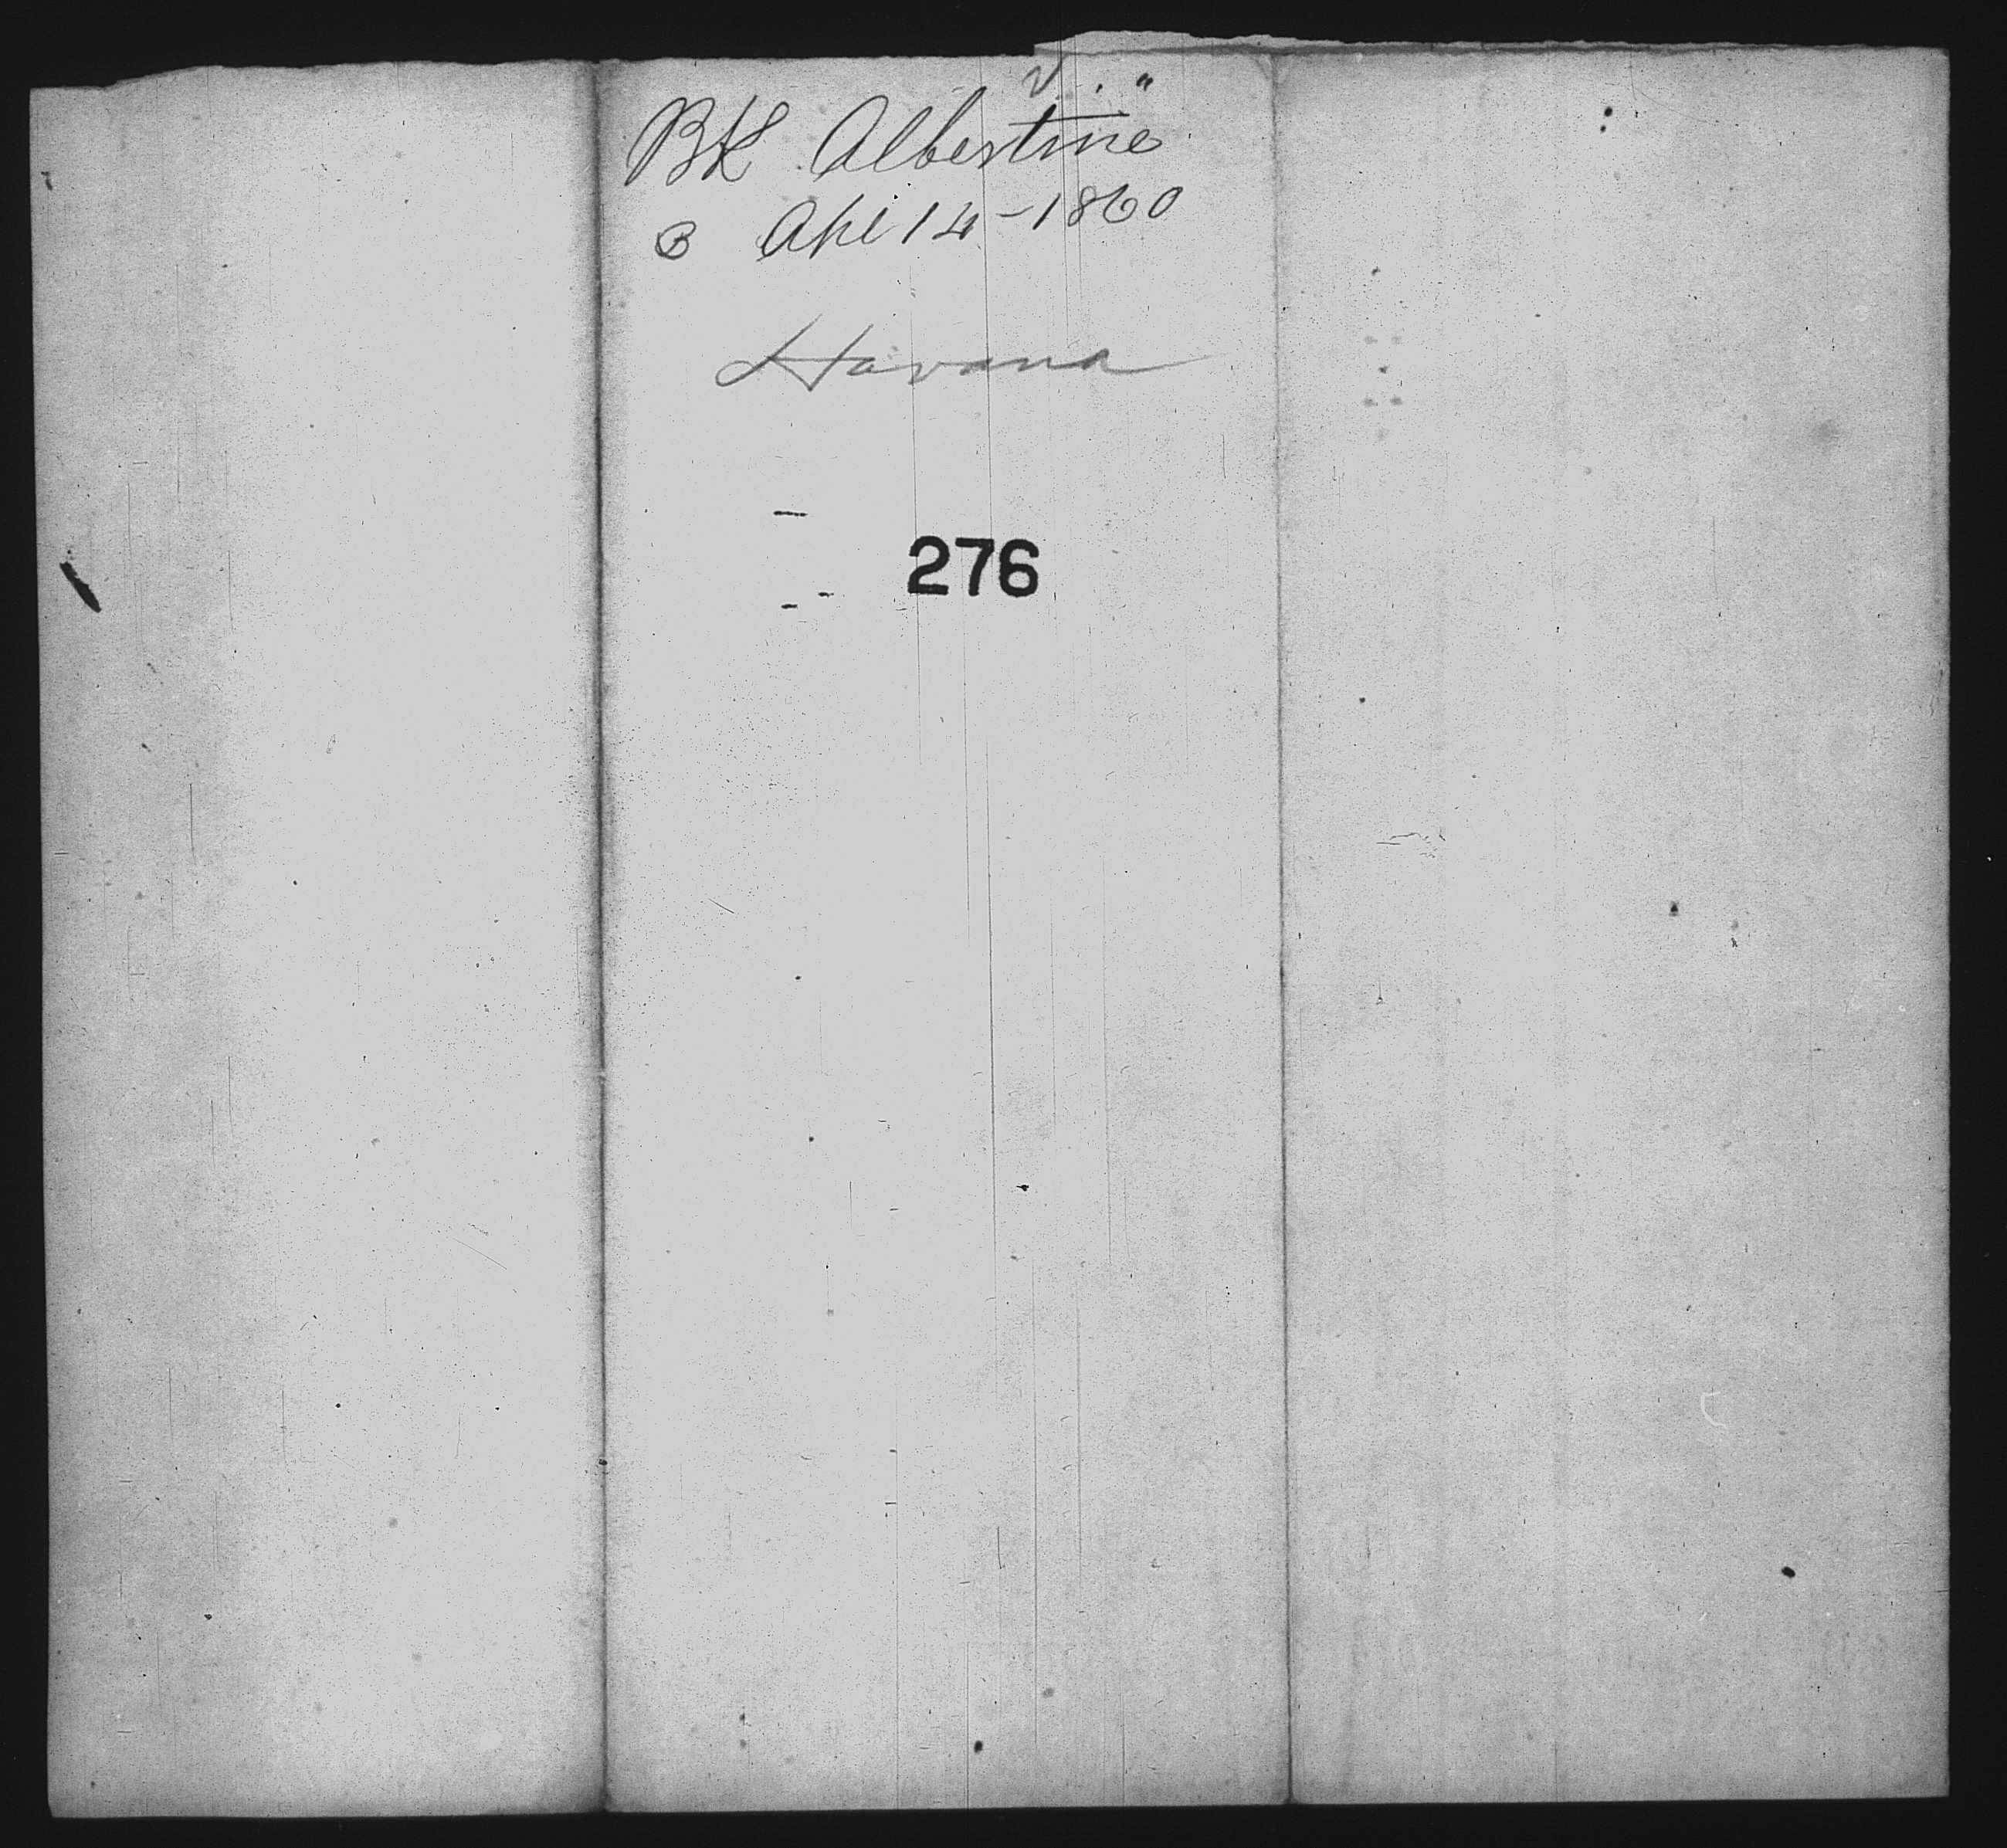 Bk Albertine
B Apl 14-1860
Havana
276